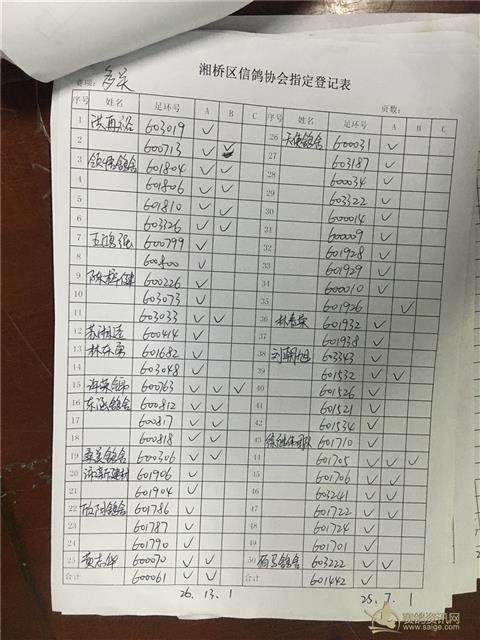 湘桥区信鸽协会指定登记表
赛项: 多关
页数:
序号 姓名 足环号 A B C
1 603019 ✓
2 600713 ✓
3 鸽舍 601804 ✓ ✓
4 601806 ✓ ✓
5 601810 ✓
6 603326 ✓ ✓
7 600799 ✓
8 600800 ✓
9 陈梓健 600226 ✓
10 603073 ✓
11 603033 ✓ ✓
12 600414 ✓
13 林东勇 601682 ✓
14 603048 ✓
15 600763 ✓ ✓ ✓
16 东涵鸽舍 600812 ✓ ✓
17 600817 ✓ ✓
18 600818 ✓ ✓
19 鸽舍 600306 ✓ ✓
20 601906 ✓
21 601904 ✓
22 鸽舍 601786 ✓
23 601787 ✓
24 601790 ✓
25 黄志华 600070 ✓ ✓
合计 600061 ✓ ✓
26. 13. 1
序号 姓名 足环号 A B C
26 天使鸽舍 600031 ✓
27 603187 ✓
28 600034 ✓
29 603322 ✓
30 600014 ✓
31 600009 ✓
32 601928 ✓
33 601929 ✓
34 600010 ✓
35 601926 ✓
36 林春荣 601932 ✓
37 601938 ✓
38 刘朝旭 603343 ✓
39 601532 ✓ ✓
40 601526 ✓
41 601521 ✓
42 601534 ✓
43 601710 ✓
44 601705 ✓ ✓ ✓
45 601706 ✓ ✓
46 603241 ✓ ✓
47 601722 ✓ ✓
48 601724 ✓
49 601701 ✓
50 佰马鸽舍 603222 ✓ ✓
合计 601442 ✓
25. 7. 1
赛鸽资讯网
www.saige.com